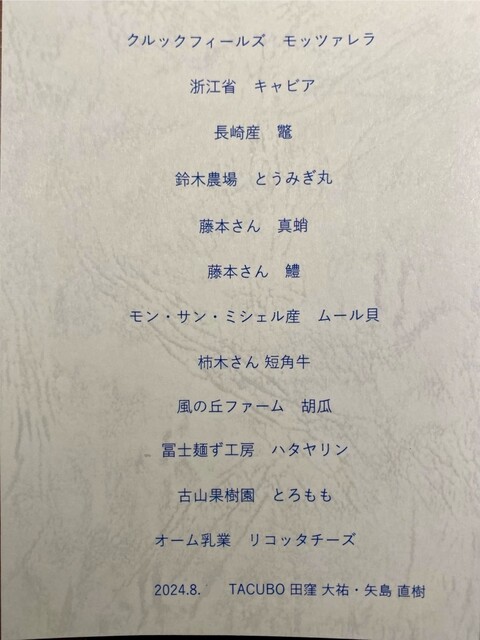 クルックフィールズ　モッツァレラ
浙江省　キャビア
長崎産　鼈
鈴木農場　とうみぎ丸
藤本さん　真蛸
藤本さん　鱧
モン・サン・ミシェル産　ムール貝
柿木さん 短角牛
風の丘ファーム　胡瓜
冨士麺ず工房　ハタヤリン
古山果樹園　とろもも
オーム乳業　リコッタチーズ
2024.8.　TACUBO 田窪 大祐・矢島 直樹